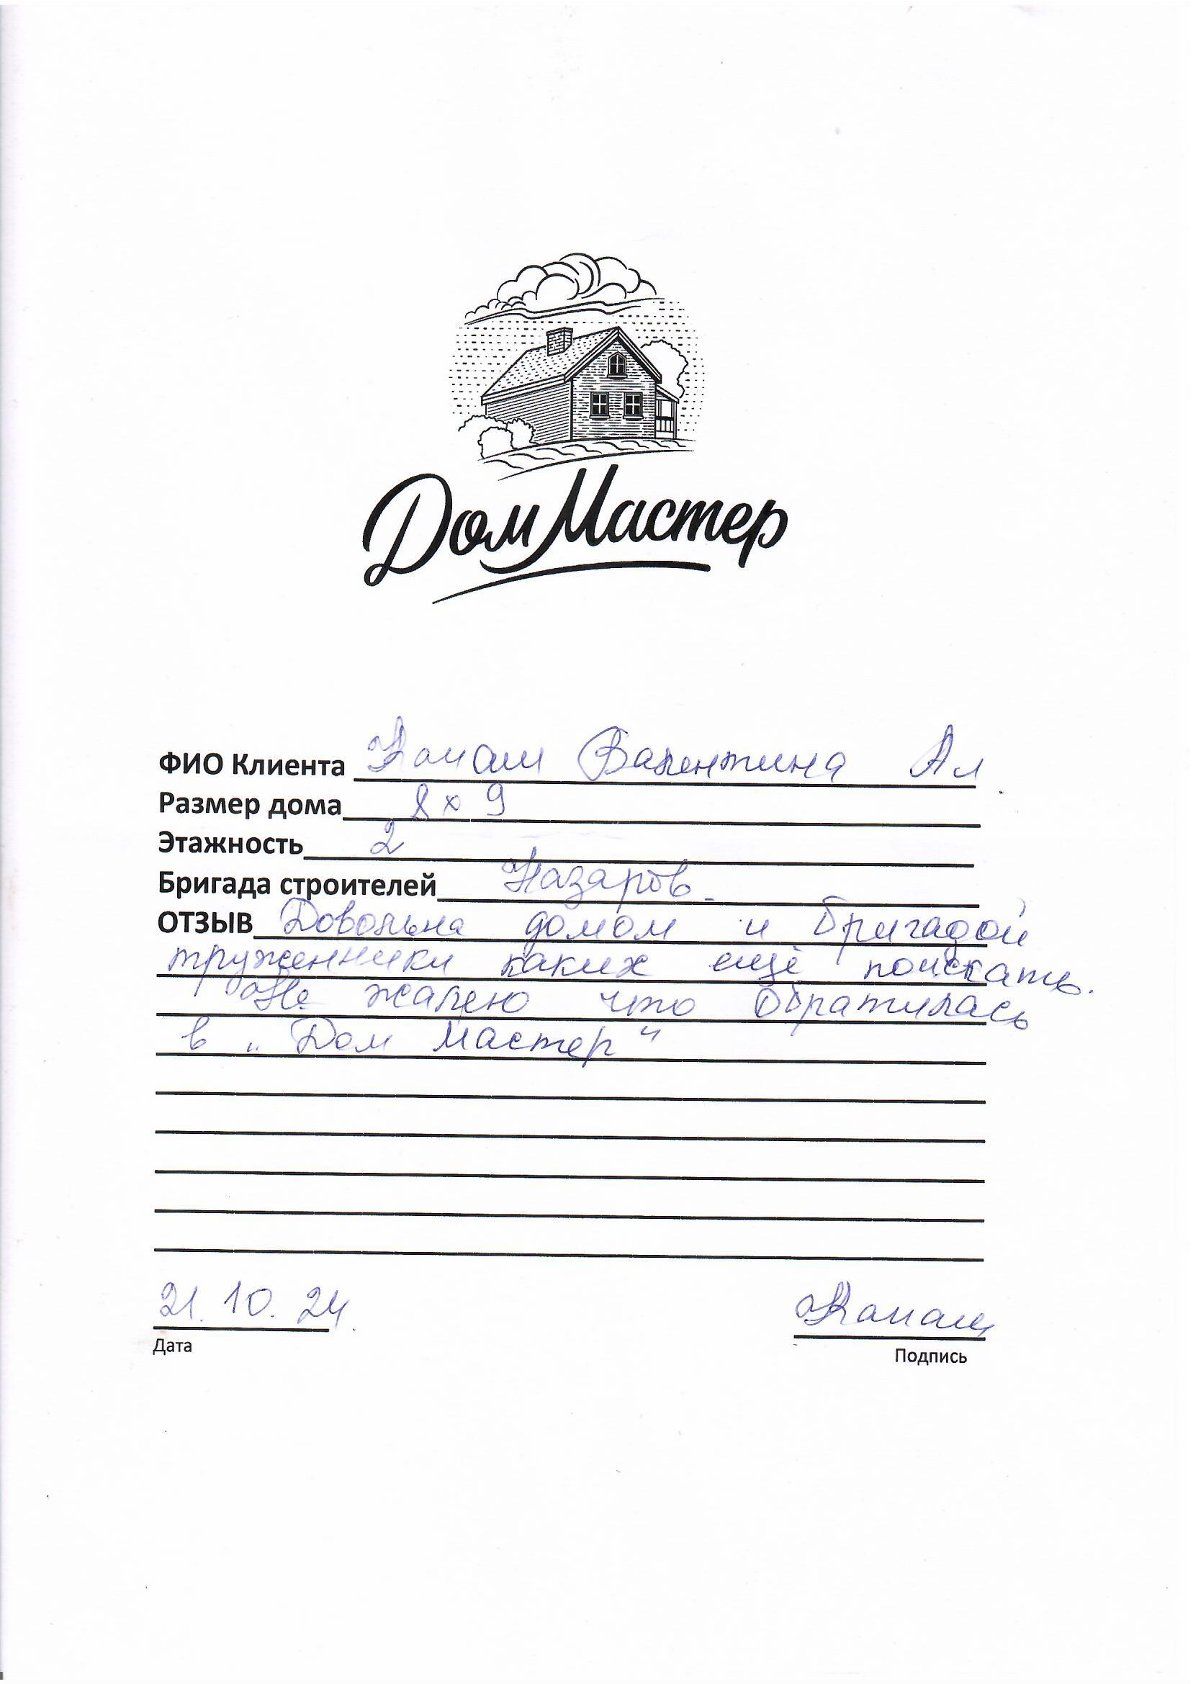 Дом Мастер
ФИО Клиента Валентина Ал
Размер дома 8х9
Этажность 2
Бригада строителей Назаров
ОТЗЫВ Довольна домом и бригадой
труженники каких ещё поискать.
Не жалею что обратилась
в "Дом Мастер"
21.10.24
Дата
Подпись